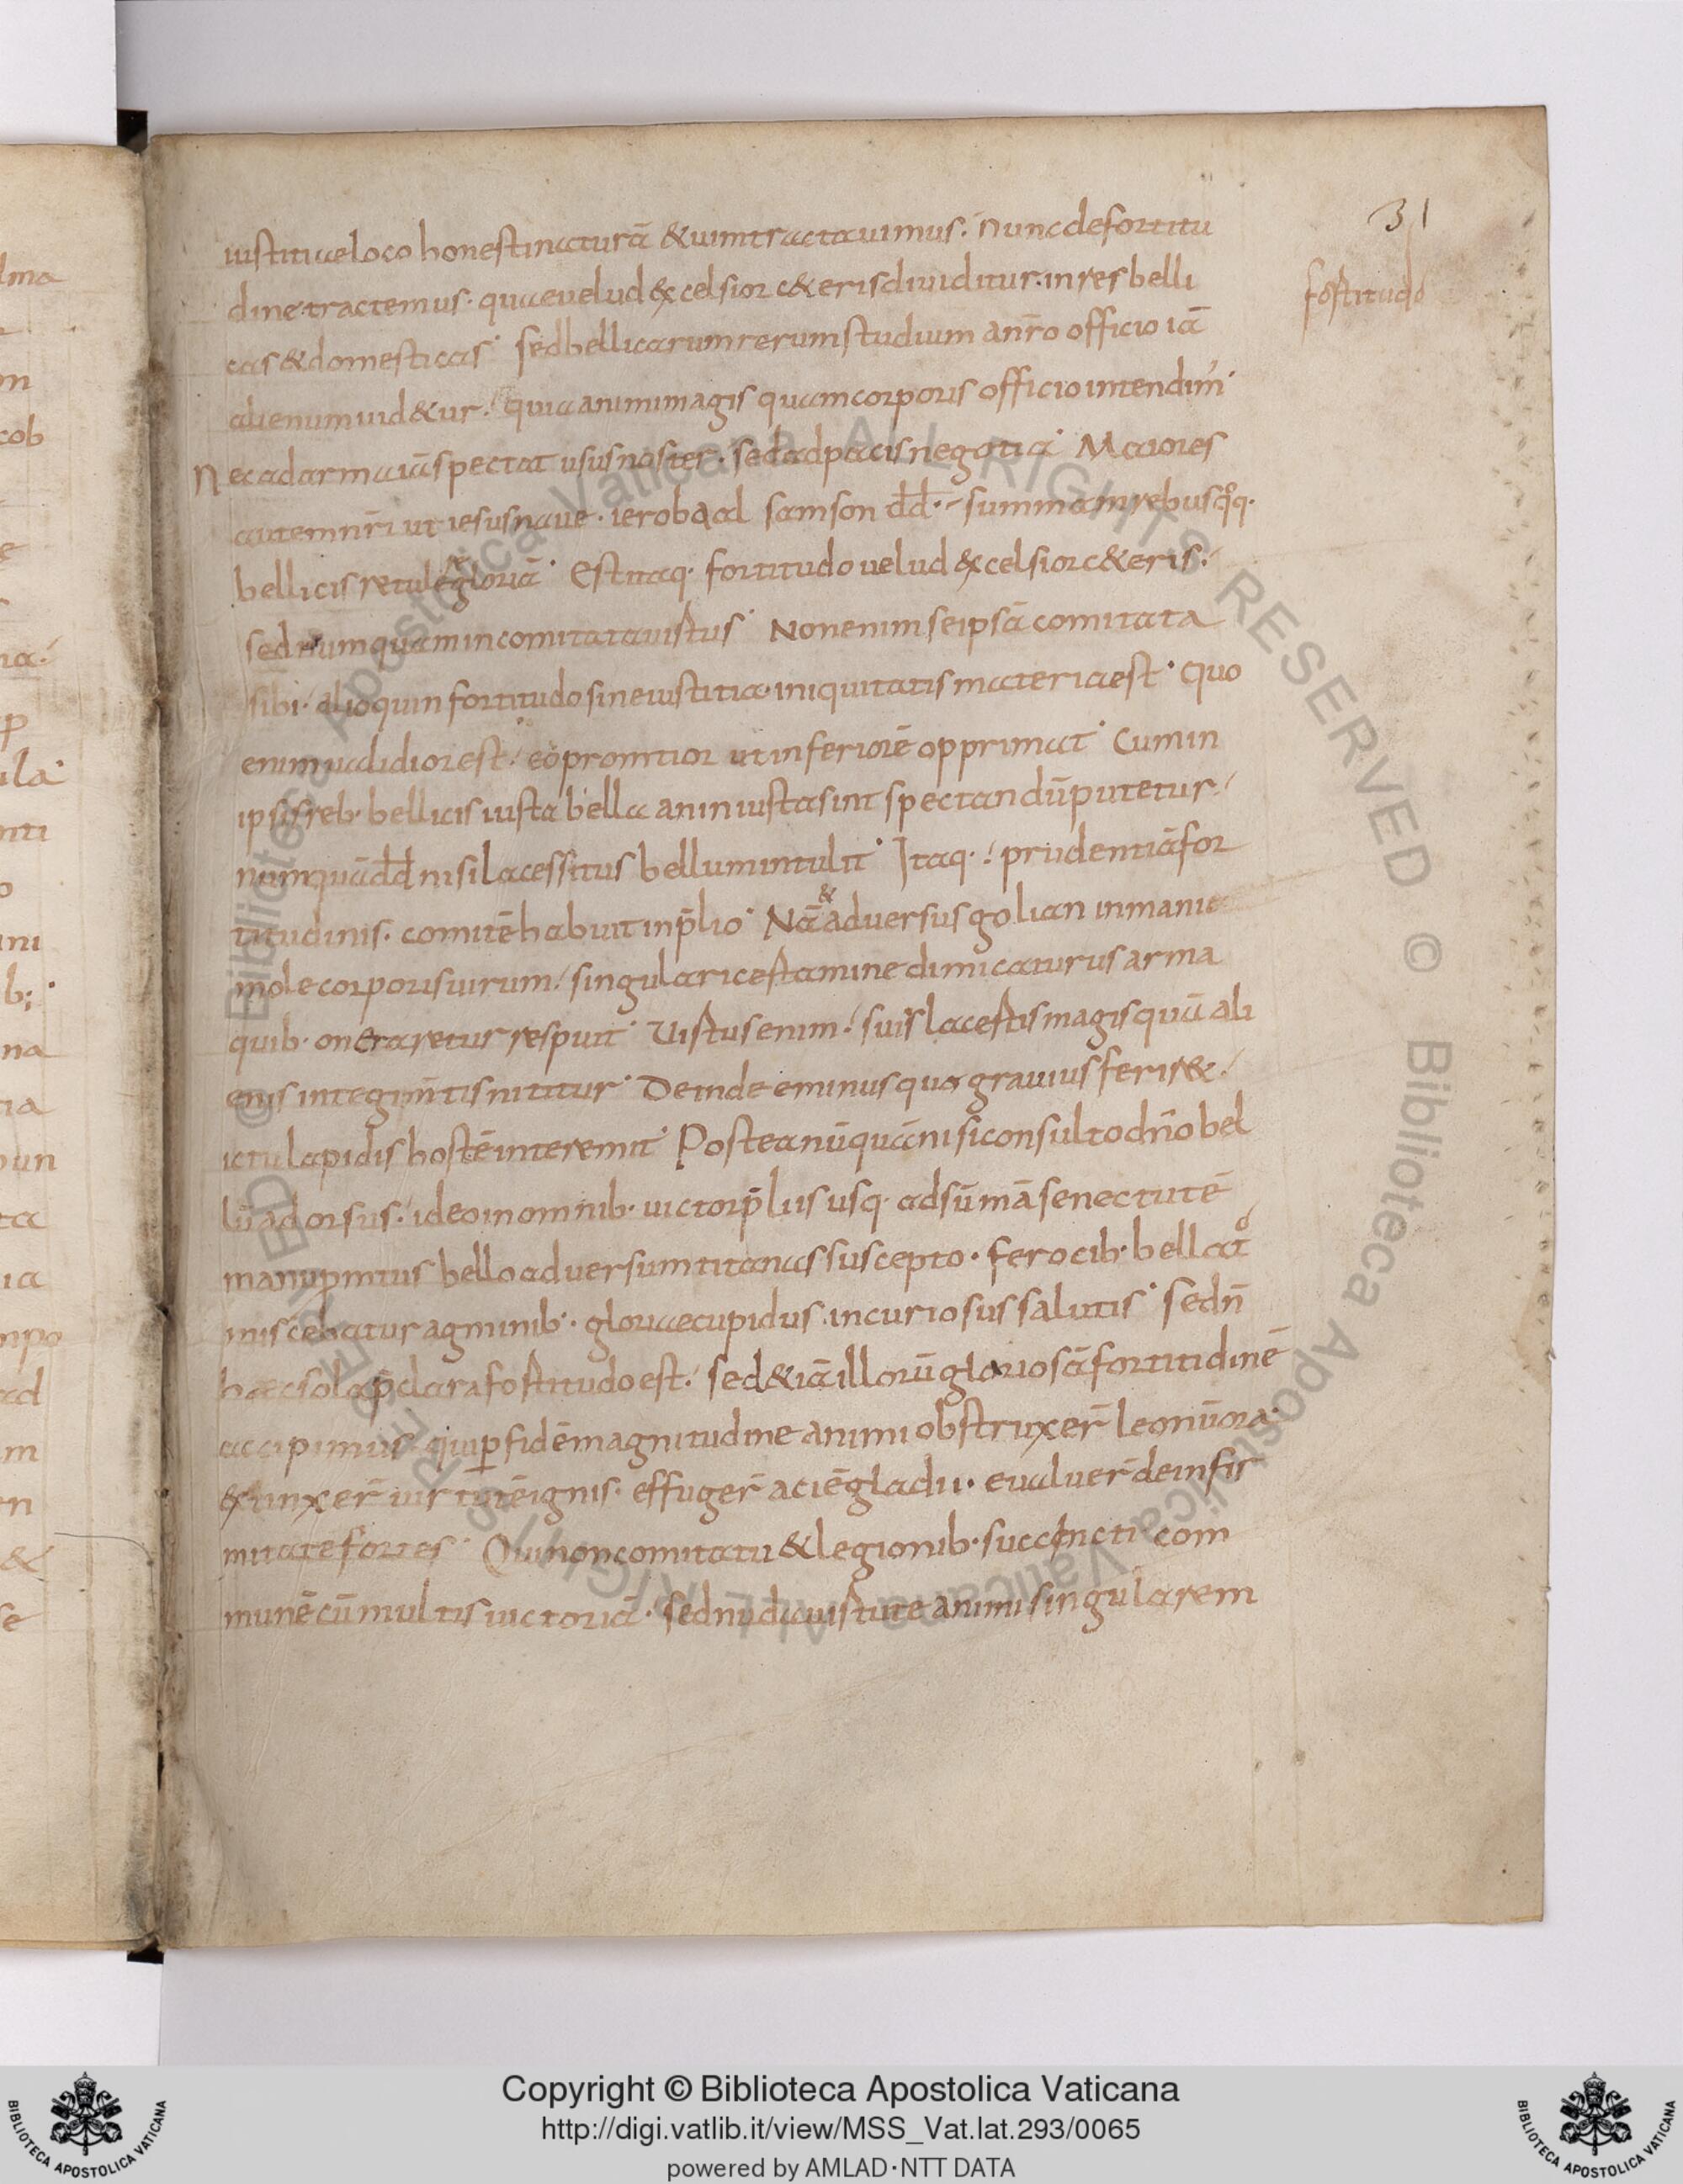 31
fortitudo
iustitiae loco honesti naturā & uim tractauimus. Nunc de fortitu
dine tractemus. quae uelud excelsior c&eris diuiditur. in res belli
cas & domesticas. sed bellicarum rerum studium a nr̄o officio iā
alienum uid&ur. quia animi magis quam corporis officio intendim'
Nec ad arma iā spectat usus noster. sed ad pacis negotia. Maiores
autem nr̄i ut iesus naue. ierobaal samson dd̄. summam rebus qq.
bellicis retulē gloriā. Est itaq. fortitudo uelud excelsior c&eris.
sed numquam incomitata uirtus. Non enim seipsā comitata
sibi. alioquin fortitudo sine iustitia. iniquitatis materia est. Quo
enim ualidior est. eo promtior ut inferiorē opprimat. Cum in
ipsis reb. bellicis iusta bella an iniusta sint spectandū putetur.
numquā dd̄ nisi lacessitus bellum intulit. Itaq. prudentiā for
titudinis. comitē habuit in p̄lio. Nā & aduersus golian inmani
mole corporis uirum. singulari certamine dimicaturus arma
quib. oneraretur respuit. Uirtus enim. suis lacertis magis quā ali
enis integimtis nititur. Deinde eminus quo grauius ferir&.
ictu lapidis hostē interemit. Postea nūquā nisi consulto dn̄o bel
lū adorsus. ideo in omnib. uictor p̄liis usq. ad sūmā senectutē
manu pmtus bello aduersum titanas suscepto. ferocib. bellato
miscebatur agminib. gloriae cupidus. incuriosus salutis. Sed n̄
haec sola p̄clara fortitudo est. sed &iā illorū gloriosā fortitudinē
accipimus. qui p fidē magnitudine animi obstruxer̄ leonū ora.
extinxer̄ uirtutē ignis. effuger̄ aciē gladii. eualuer̄ de infir
mitate fortes. Qui non comitatu & legionib. succincti com
munē cū multis uictoriā. sed nuda uirtute animi singularem
Copyright © Biblioteca Apostolica Vaticana
http://digi.vatlib.it/view/MSS_Vat.lat.293/0065
powered by AMLAD·NTT DATA